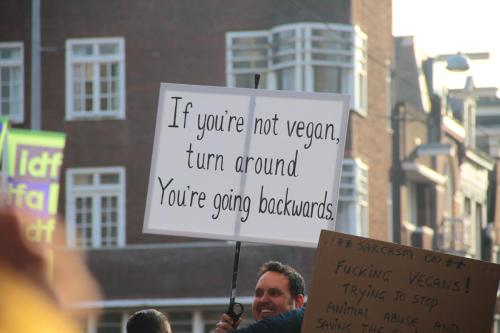 If you're not vegan,
turn around
You're going backwards.
idf
fa
idf
** SARCASM ON **
FUCKING VEGANS!
TRYING TO STOP
ANIMAL ABUSE AND
SAVING THE